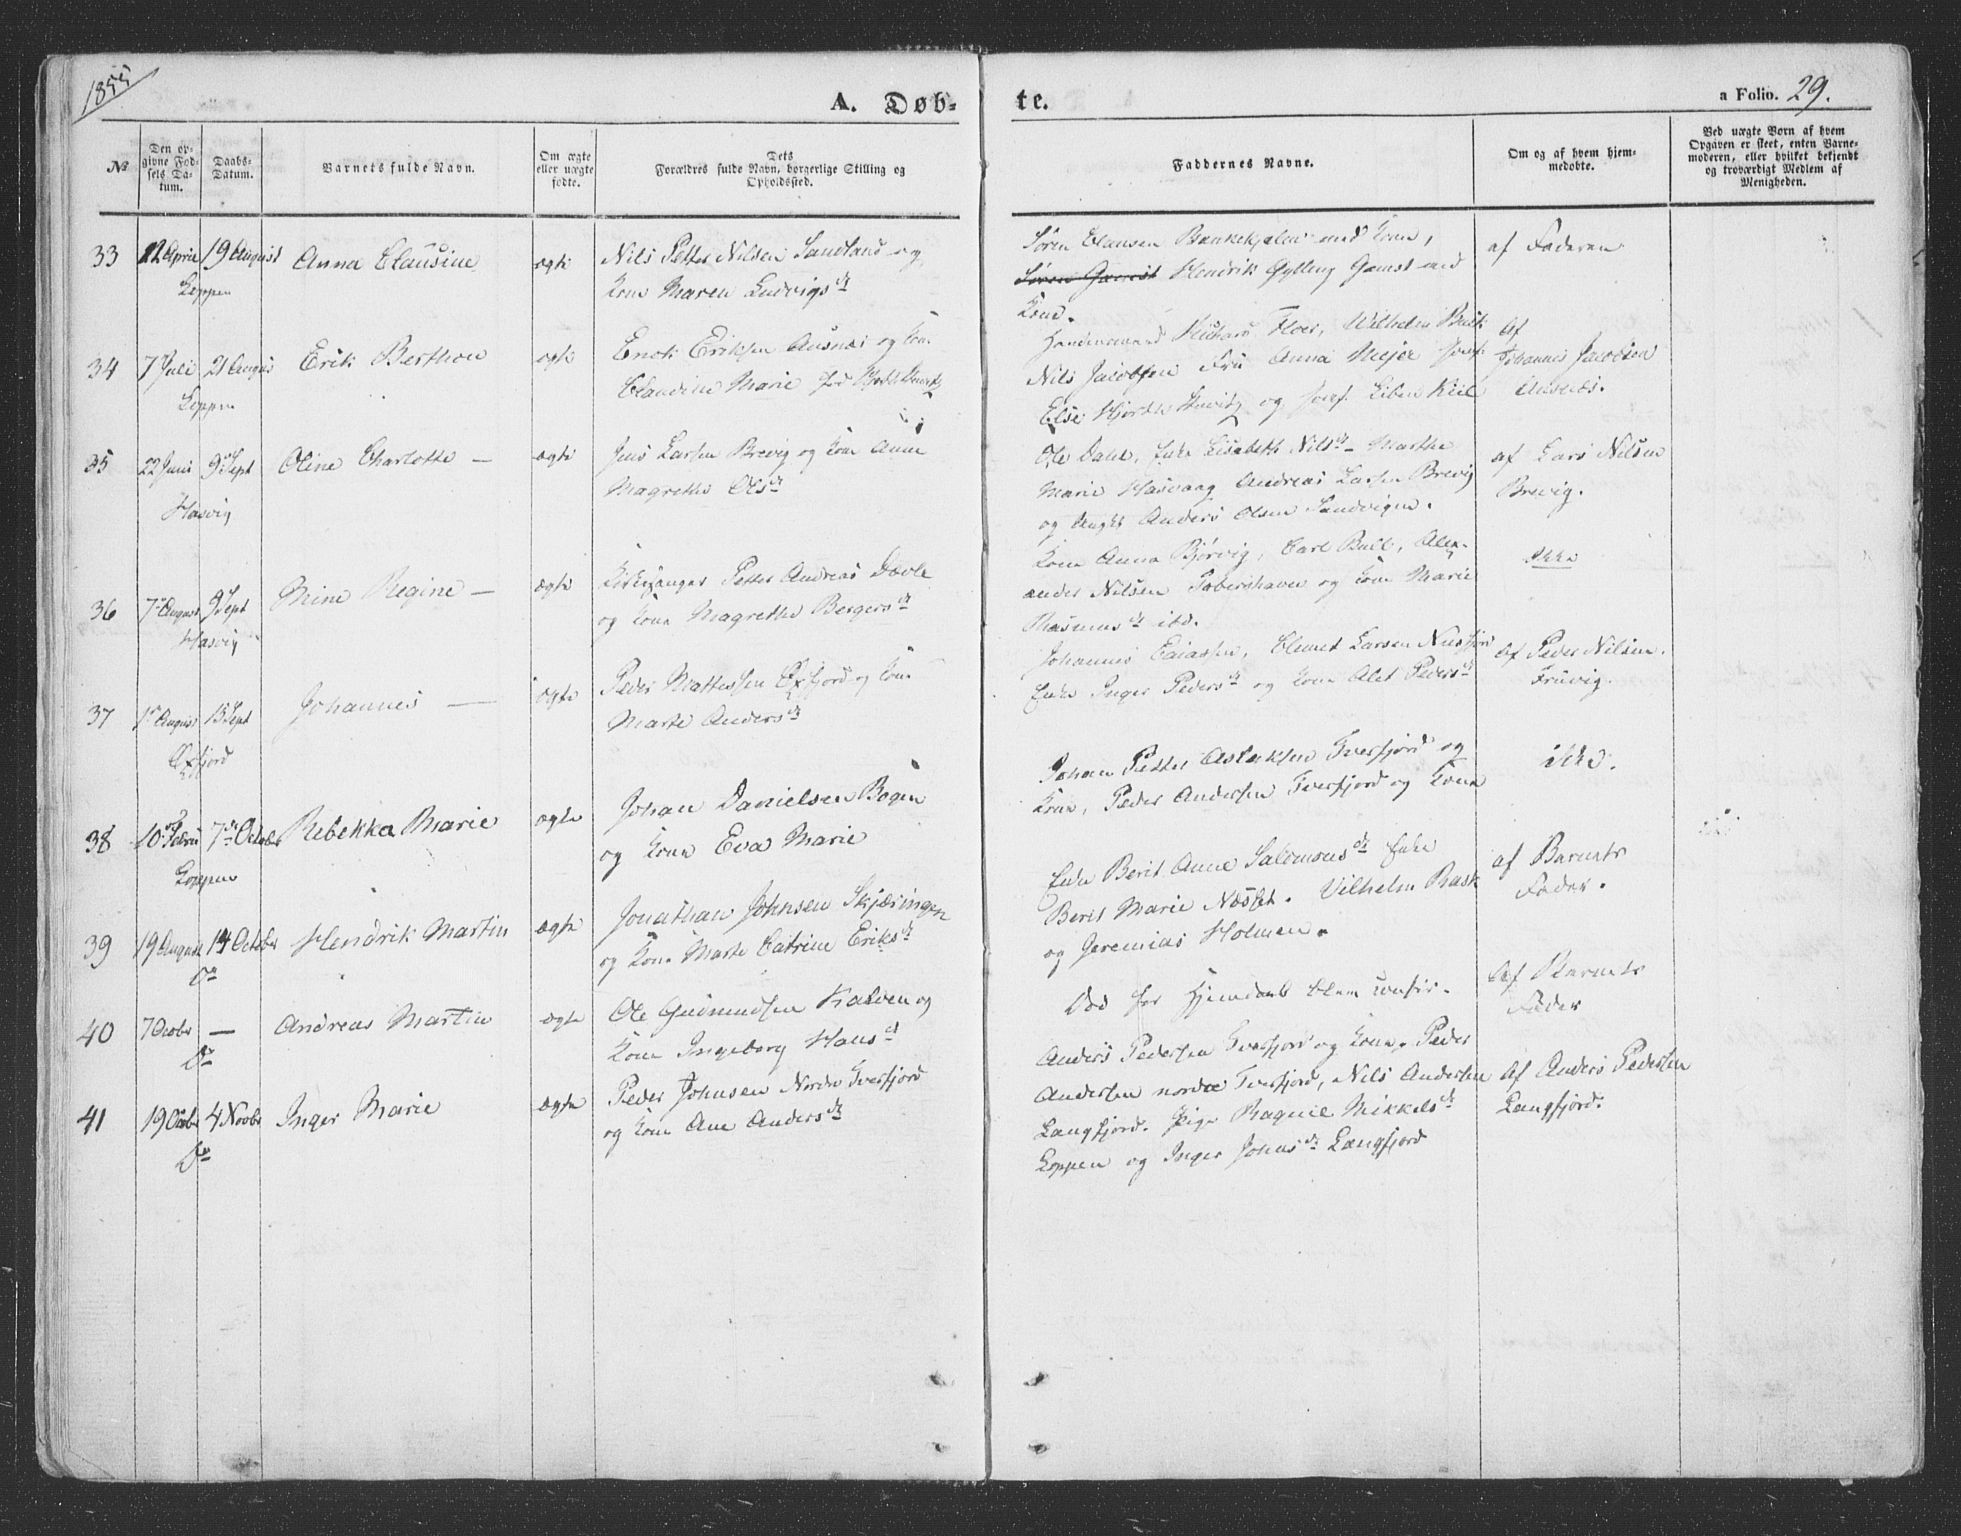 1855
A. Døb-
te.
a Folio. 29.
No
Den op-
givne Fød-
sels Da-
tum.
Daabs-
Datum.
Barnets fulde Navn.
Om ægte
eller uægte
fødte.
Dets
Forældres fulde Navn, borgerlige Stilling og
Opholdssted.
Faddernes Navne.
Om og af hvem hjem-
medøbte.
Ved uægte Born af hvem
Opgaven er skeet, enten Barne-
moderen, eller hvilket bekjendt
og troværdigt Medlem af
Menigheden.
33 12 April 19 August Anna Clausine ægte Nils Petter Nilsen Sandland og
Loppen
Kone Maren Ludvigsdt
Søren Clausen med Kone,
Hendrik Gylling Gamst med
Kone.
af Faderen
34 7 Juli 21 August Erik Berthou ægte Enok Eriksen Ausnæs og Kone
Loppen
Claudine Marie
Floer, Wilhelm Buck
Nils Jacobsen Fru Anna Mejer
Else Hjorth og
Af
Johannes Jacobsen
Ausnæs.
35 22 Juni 9 Sept Oline Charlotte — ægte Jens Larsen Brevig og Kone Anne
Hasvig
Magrethe Olsdt
Ole Dahl, Enke Elisabeth Nilsdt Marthe
Marie Hasvaag Andreas Larsen Brevig
og Anders Olsen Sandvigen.
af Lars Nilsen
Brevig.
36 7 August 9 Sept Mine Regine — ægte Kirkesanger Petter Andreas
Hasvig
og Kone Magrethe Bergersdt
Kone Anna Bjørvig, Carl Buck, Alex-
ander Nilsen og Kone Marie
Rasmusdt ibd.
ikke
37 1 August 13 Sept Johannes — ægte Peder Mattessen Øxfjord og Kone
Øxfjord
Marte Andersdt
Johannes Clemet Larsen
Enke Inger Pedersdt og Kone Alet Pedersdt
af Peder Nilsen
38 10 7de October Rebekka Marie ægte Johan Danielsen Bogen
Loppen
og Kone Eva Marie
Johan Petter Aslaksen Tverfjord og
Kone, Peder Andersen Tverfjord og Kone
ikke.
39 19 August 14 October Hendrik Martin ægte Jonathan Johnsen Skjæringen
Do
og Kone Marte Catrine Eriksdt
Enke Berit Anne Salomonsdt Enke
Berit Marie Næsset. Vilhelm Rask
og Jeremias Holmen.
af Barnets
Fader.
40 7 Octobr — Andreas Martin ægte Ole Gudmundsen Kalven og
Do
Kone Ingeborg Hansdt
Død før Hjemdaab blev confir.
Af Barnets
Fader
41 19 Octbr 4 Novbr Inger Marie ægte Peder Johnsen Nordre Tverfjord
Do
og Kone Ane Andersdt
Anders Pedersen Tverfjord og Kone, Peder
Andersen nordre Tverfjord, Nils Andersen
Langfjord. Pige Ragnil Mikkelsdt
Loppen og Inger Johnsdt Langfjord
Af Anders Pedersen
Langfjord.